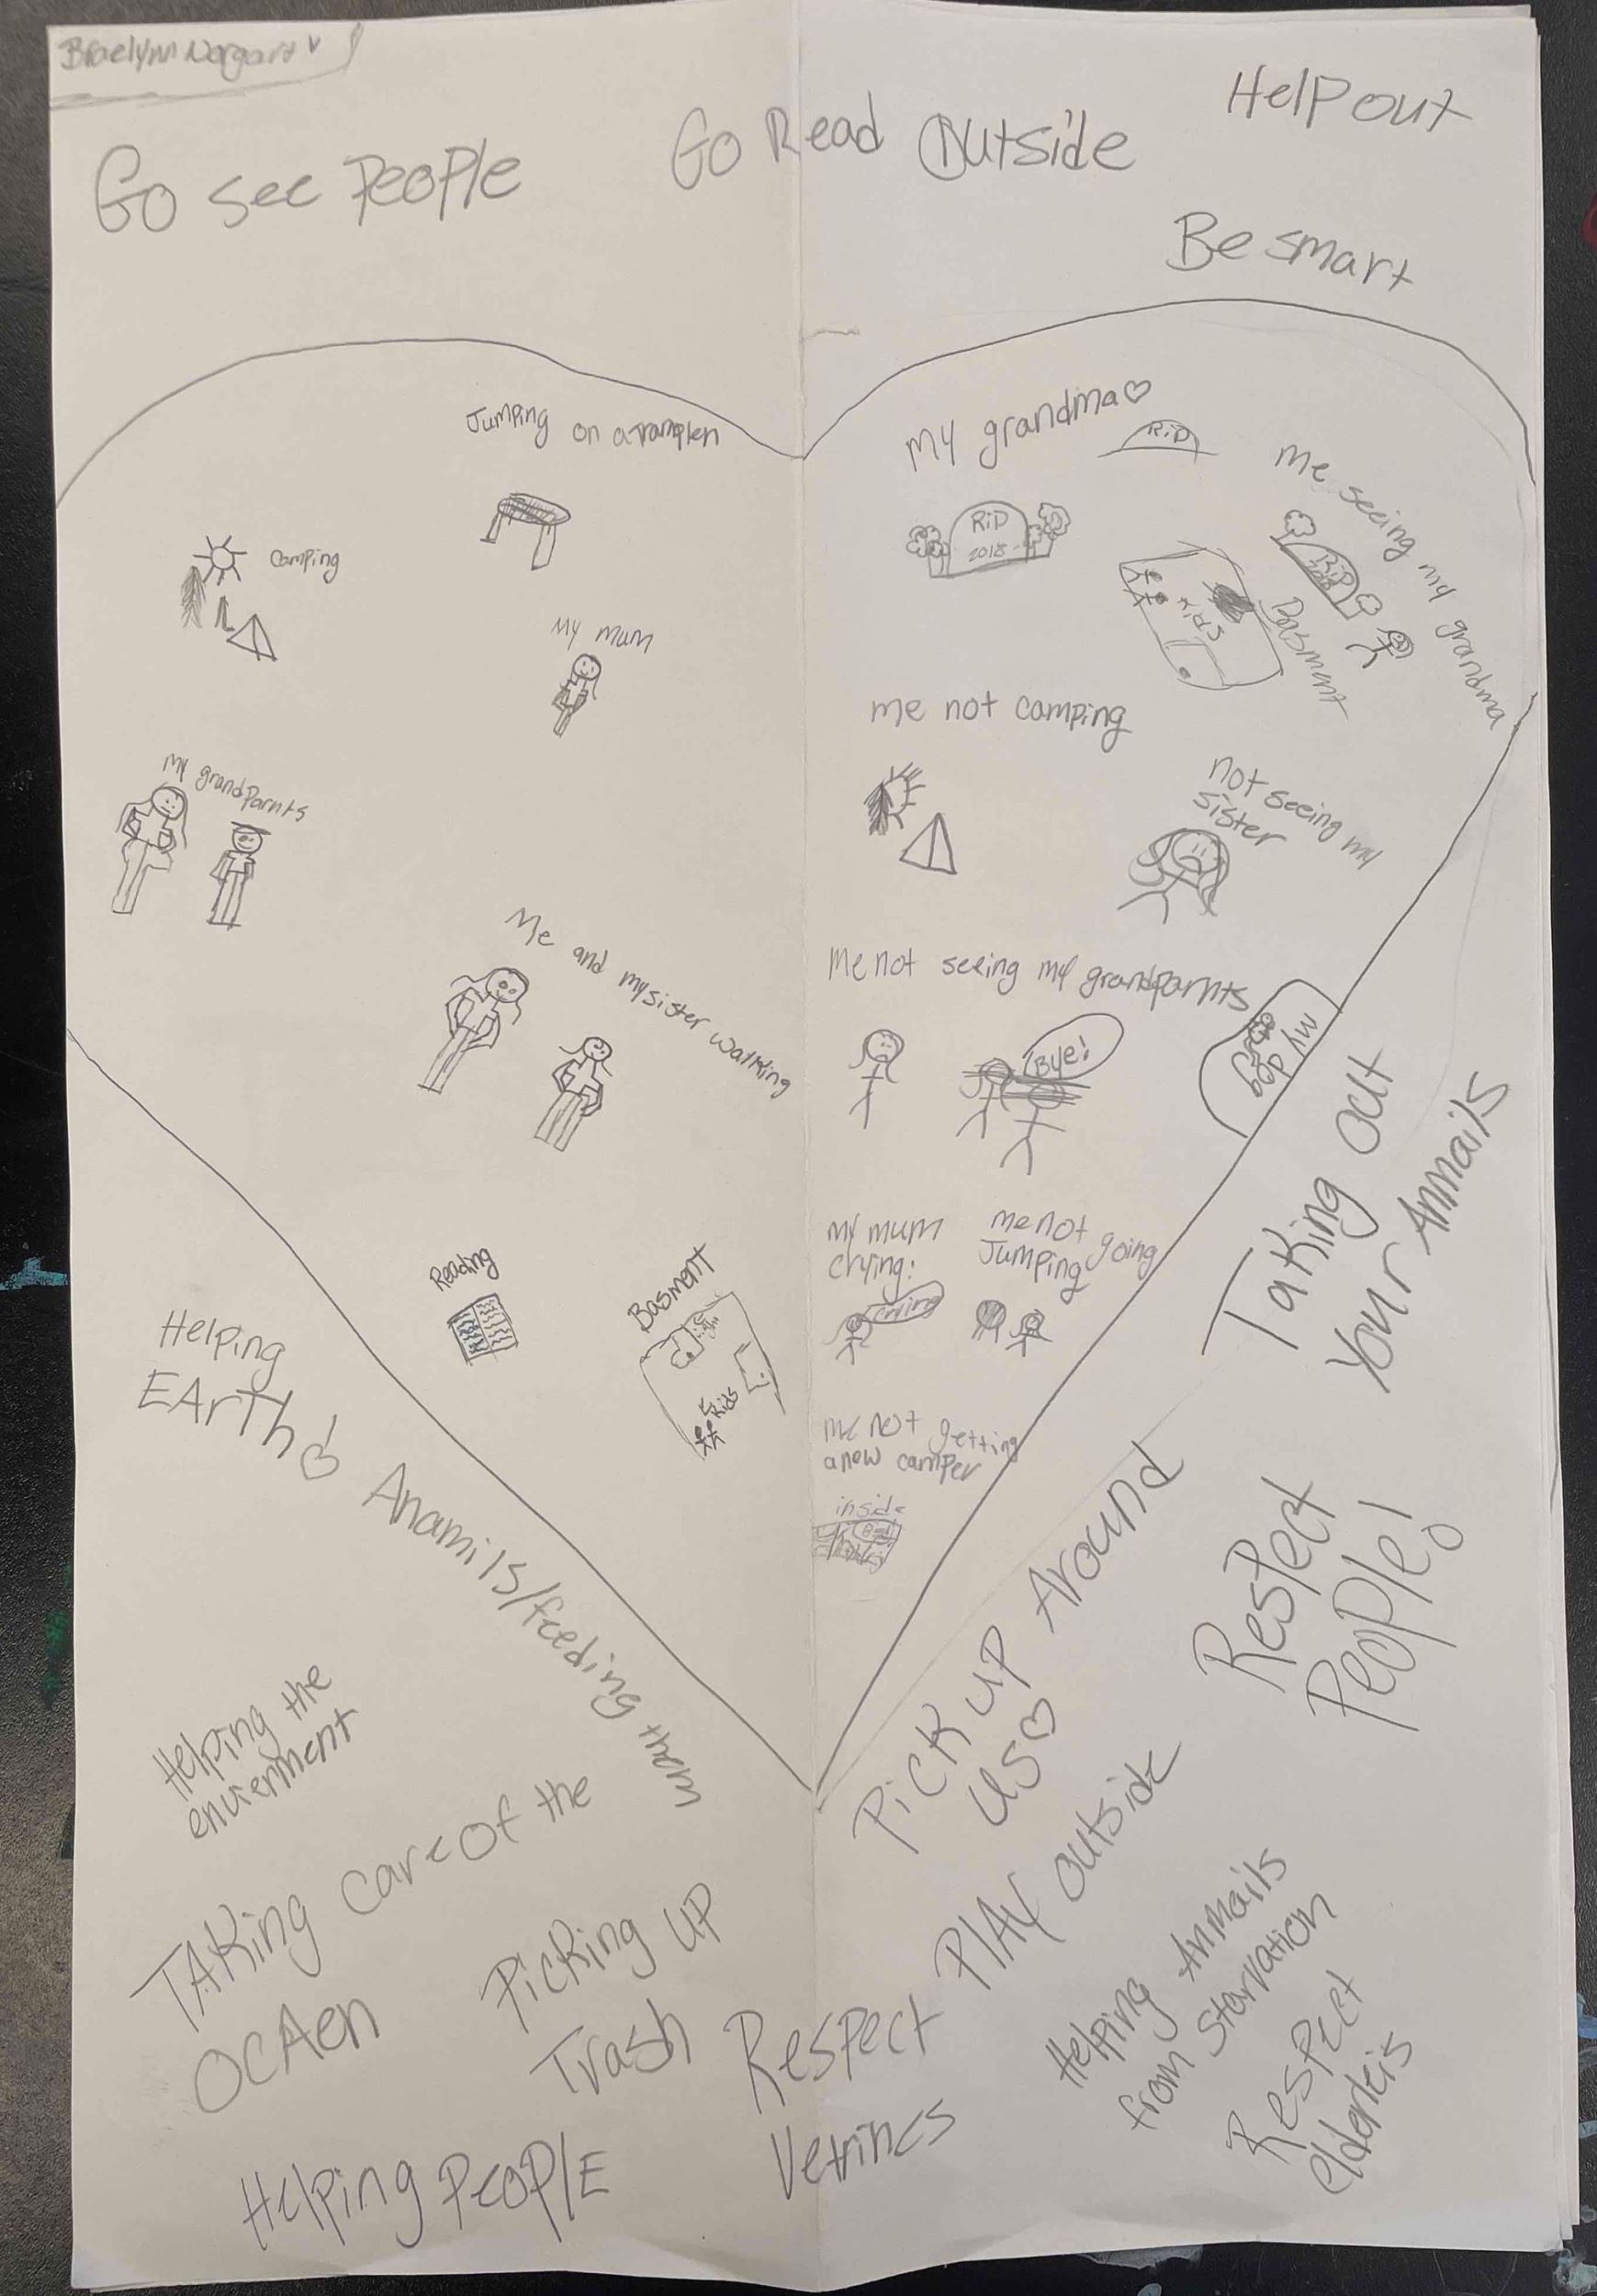 Go see People
Go Read Outside
Help out
Be smart
Jumping on a
camping
My mum
My grandParnts
Me and my sister walking
Reading
Basment
Kids
My grandma
RiD
RiD
2018
me seeing my grandma
RiD
Basment
Kids
me not camping
not seeing my
sister
me not seeing my grandparnts
Bye!
My dog
my mum
crying:
crying
me not going
Jumping
me not getting
a new camper
inside
Bed
Helping
EArth
Anamils/feeding them
Helping the
envierment
TAKing care of the
OCAen
Picking UP
Trash
Helping PeoPlE
Taking out
Your Anmails
Pick up Around
us
Respect
People!
PlAy outside
Respect
Vetrines
Helping Anmails
from Starvation
Respect
elderleis